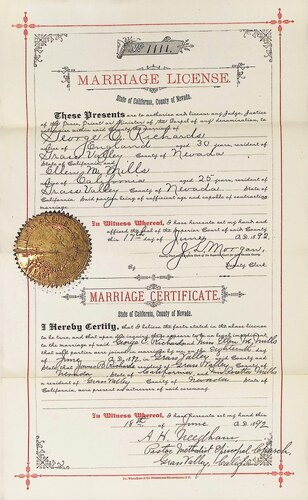 No. 1111.
MARRIAGE LICENSE.
State of California, County of Nevada.
These Presents are to authorize and license any Judge, Justice
of the Peace, Priest or Minister of the Gospel of any denomination, to
solemnize within said County the marriage of
George C. Richards
of England aged 30 years, resident
of Grass Valley County of Nevada State of
Ellen M. Mills
of California aged 25 years, resident
of Grass Valley County of Nevada State of
California. Said parties being of sufficient age and capable of contracting
marriage.
In Witness Whereof, I have hereunto set my hand and
affixed the Seal of the Superior Court of said County
this 17th day of June A.D. 1892.
J. L. Morgan,
By
Deputy Clerk
MARRIAGE CERTIFICATE.
State of California, County of Nevada.
I Hereby Certify, that I believe the facts stated in the above license
to be true, and that upon due inquiry there appears to be no legal impediment
to the marriage of said George C. Richards and Miss Ellen M. Mills
that said parties were joined in marriage by me on the
day of June A.D. 1892, in Grass Valley County and
State; that James Richards a resident of Grass Valley County of
Nevada State of California and
a resident of Grass Valley County of Nevada State of
California, are present as witnesses of said ceremony.
In Witness Whereof, I have hereunto set my hand this
18th of June A.D. 1892
A. H. Needham
Pastor Methodist Episcopal Church,
Grass Valley, Calif.